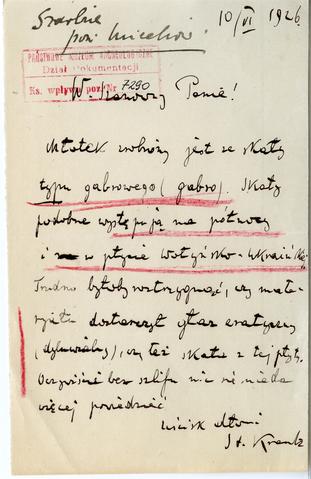 10/VI 1926
pow. Miechów.
PAŃSTWOWE MUZEUM ARCHEOLOGICZNE
Dział Dokumentacji
Ks. wpływu poz. Nr 7290
W. Szanowny Panie!
Młotek zrobiony jest ze skały
typu gabrowego (gabro). Skały
podobne występują na północy
i w płycie Wołyńsko-Ukraińskiej.
Trudno byłoby rozstrzygnąć, czy mate-
rjału dostarczył głaz eratyczny
(dyluwialny), czy też skała z tej płyty.
Oczywiście bez szlifu nic się nie da
więcej powiedzieć
Uścisk dłoni
St. Krentz